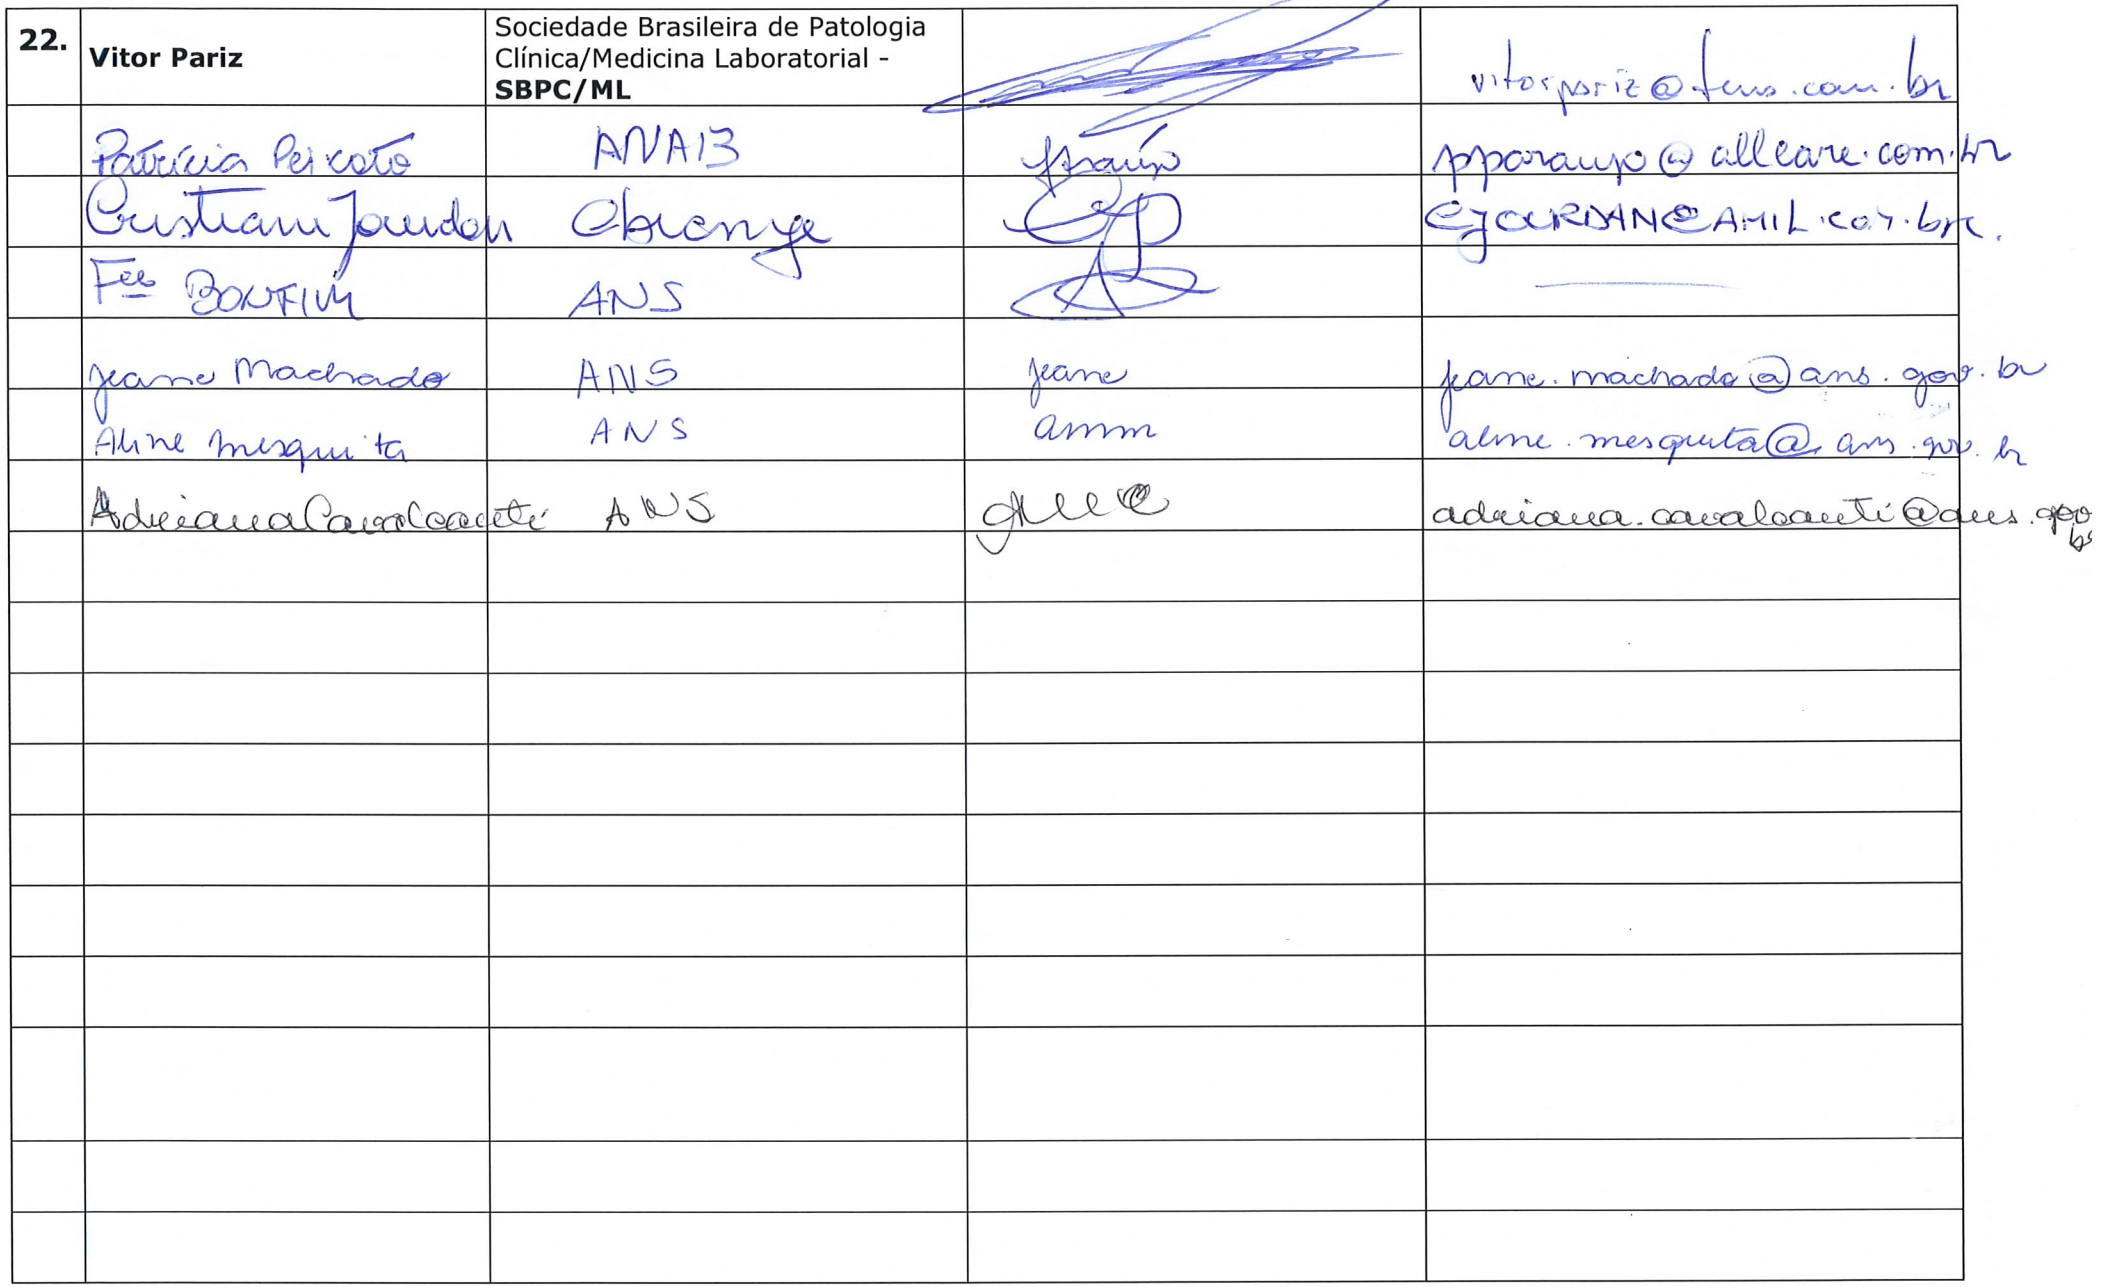 22.
Vitor Pariz
Sociedade Brasileira de Patologia
Clínica/Medicina Laboratorial -
SBPC/ML
Patrícia Peixoto ANAB pparaujo@allcare.com.br
Cristiane Jourdan Abramge cjourdan@AMIL.com.br.
BONFIM ANS
Jeane Machado ANS Jeane jeane.machado@ans.gov.br
Aline Mesquita ANS amm aline.mesquita@ans.gov.br
Adriana Cavalcanti ANS adriana.cavalcanti@ans.gov
br